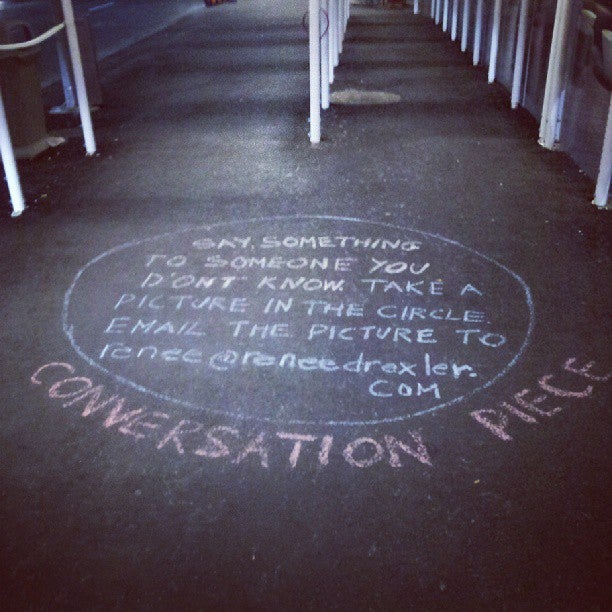 SAY SOMETHING
TO SOMEONE YOU
D'ONT KNOW. TAKE A
PICTURE IN THE CIRCLE
EMAIL THE PICTURE TO
renee@reneedrexler.
COM
CONVERSATION PIECE